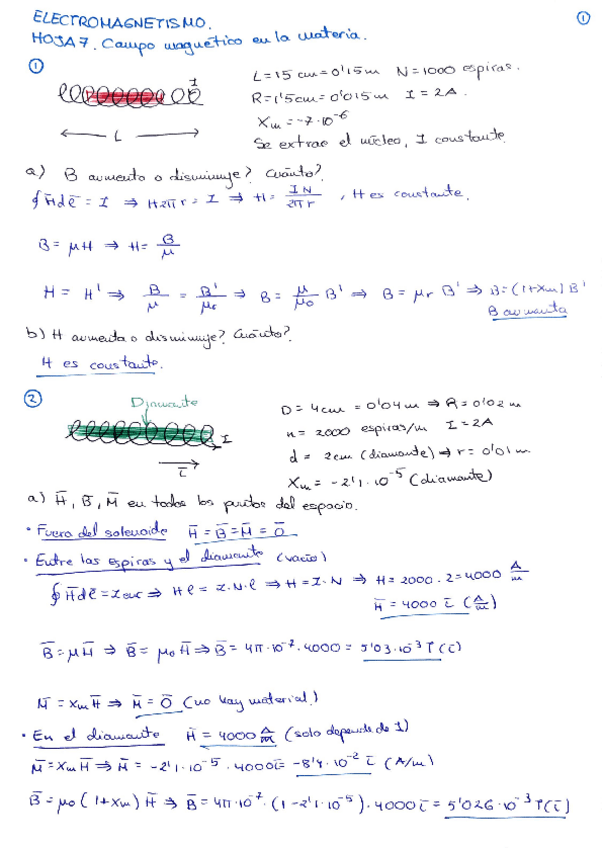 ELECTROMAGNETISMO. ①
HOJA 7. Campo magnético en la materia.
①
I
L = 15 cm = 0'15 m N = 1000 espiras.
R = 1'5 cm = 0'015 m I = 2A.
Xm = -7·10^-6
Se extrae el núcleo, I constante.
L
a) B aumenta o disminuye? Cuánto?
∮ H̄ d ē = I ⇒ H2πr = I ⇒ H = IN/2πr , H es constante.
B = μH ⇒ H = B/μ
H = H' ⇒ B/μ = B'/μ₀ ⇒ B = μ/μ₀ B' ⇒ B = μr B' ⇒ B = (1+Xm) B'
B aumenta
b) H aumenta o disminuye? Cuánto?
H es constante.
②
Diamante
I
D = 4cm = 0'04 m ⇒ R = 0'02 m
n = 2000 espiras/m I = 2A
d = 2cm (diamante) ⇒ r = 0'01 m.
Xm = -2'1·10^-5 (diamante)
a) H̄, B̄, M̄ en todos los puntos del espacio.
· Fuera del solenoide H̄ = B̄ = M̄ = 0̄
· Entre las espiras y el diamante (vacío)
∮ H̄ d ē = I enc ⇒ H l = I·N·l ⇒ H = I·N ⇒ H = 2000·2 = 4000 A/m
H̄ = 4000 ī (A/m)
B̄ = μH̄ ⇒ B̄ = μ₀ H̄ ⇒ B̄ = 4π·10^-7·4000 = 5'03·10^-3 T (ī)
M̄ = Xm H̄ ⇒ M̄ = 0̄ (no hay material)
· En el diamante H̄ = 4000 A/m (solo depende de I)
M̄ = Xm H̄ ⇒ M̄ = -2'1·10^-5·4000 ī = -8'4·10^-2 ī (A/m)
B̄ = μ₀ (1+Xm) H̄ ⇒ B̄ = 4π·10^-7·(1-2'1·10^-5)·4000 ī = 5'026·10^-3 T (ī)